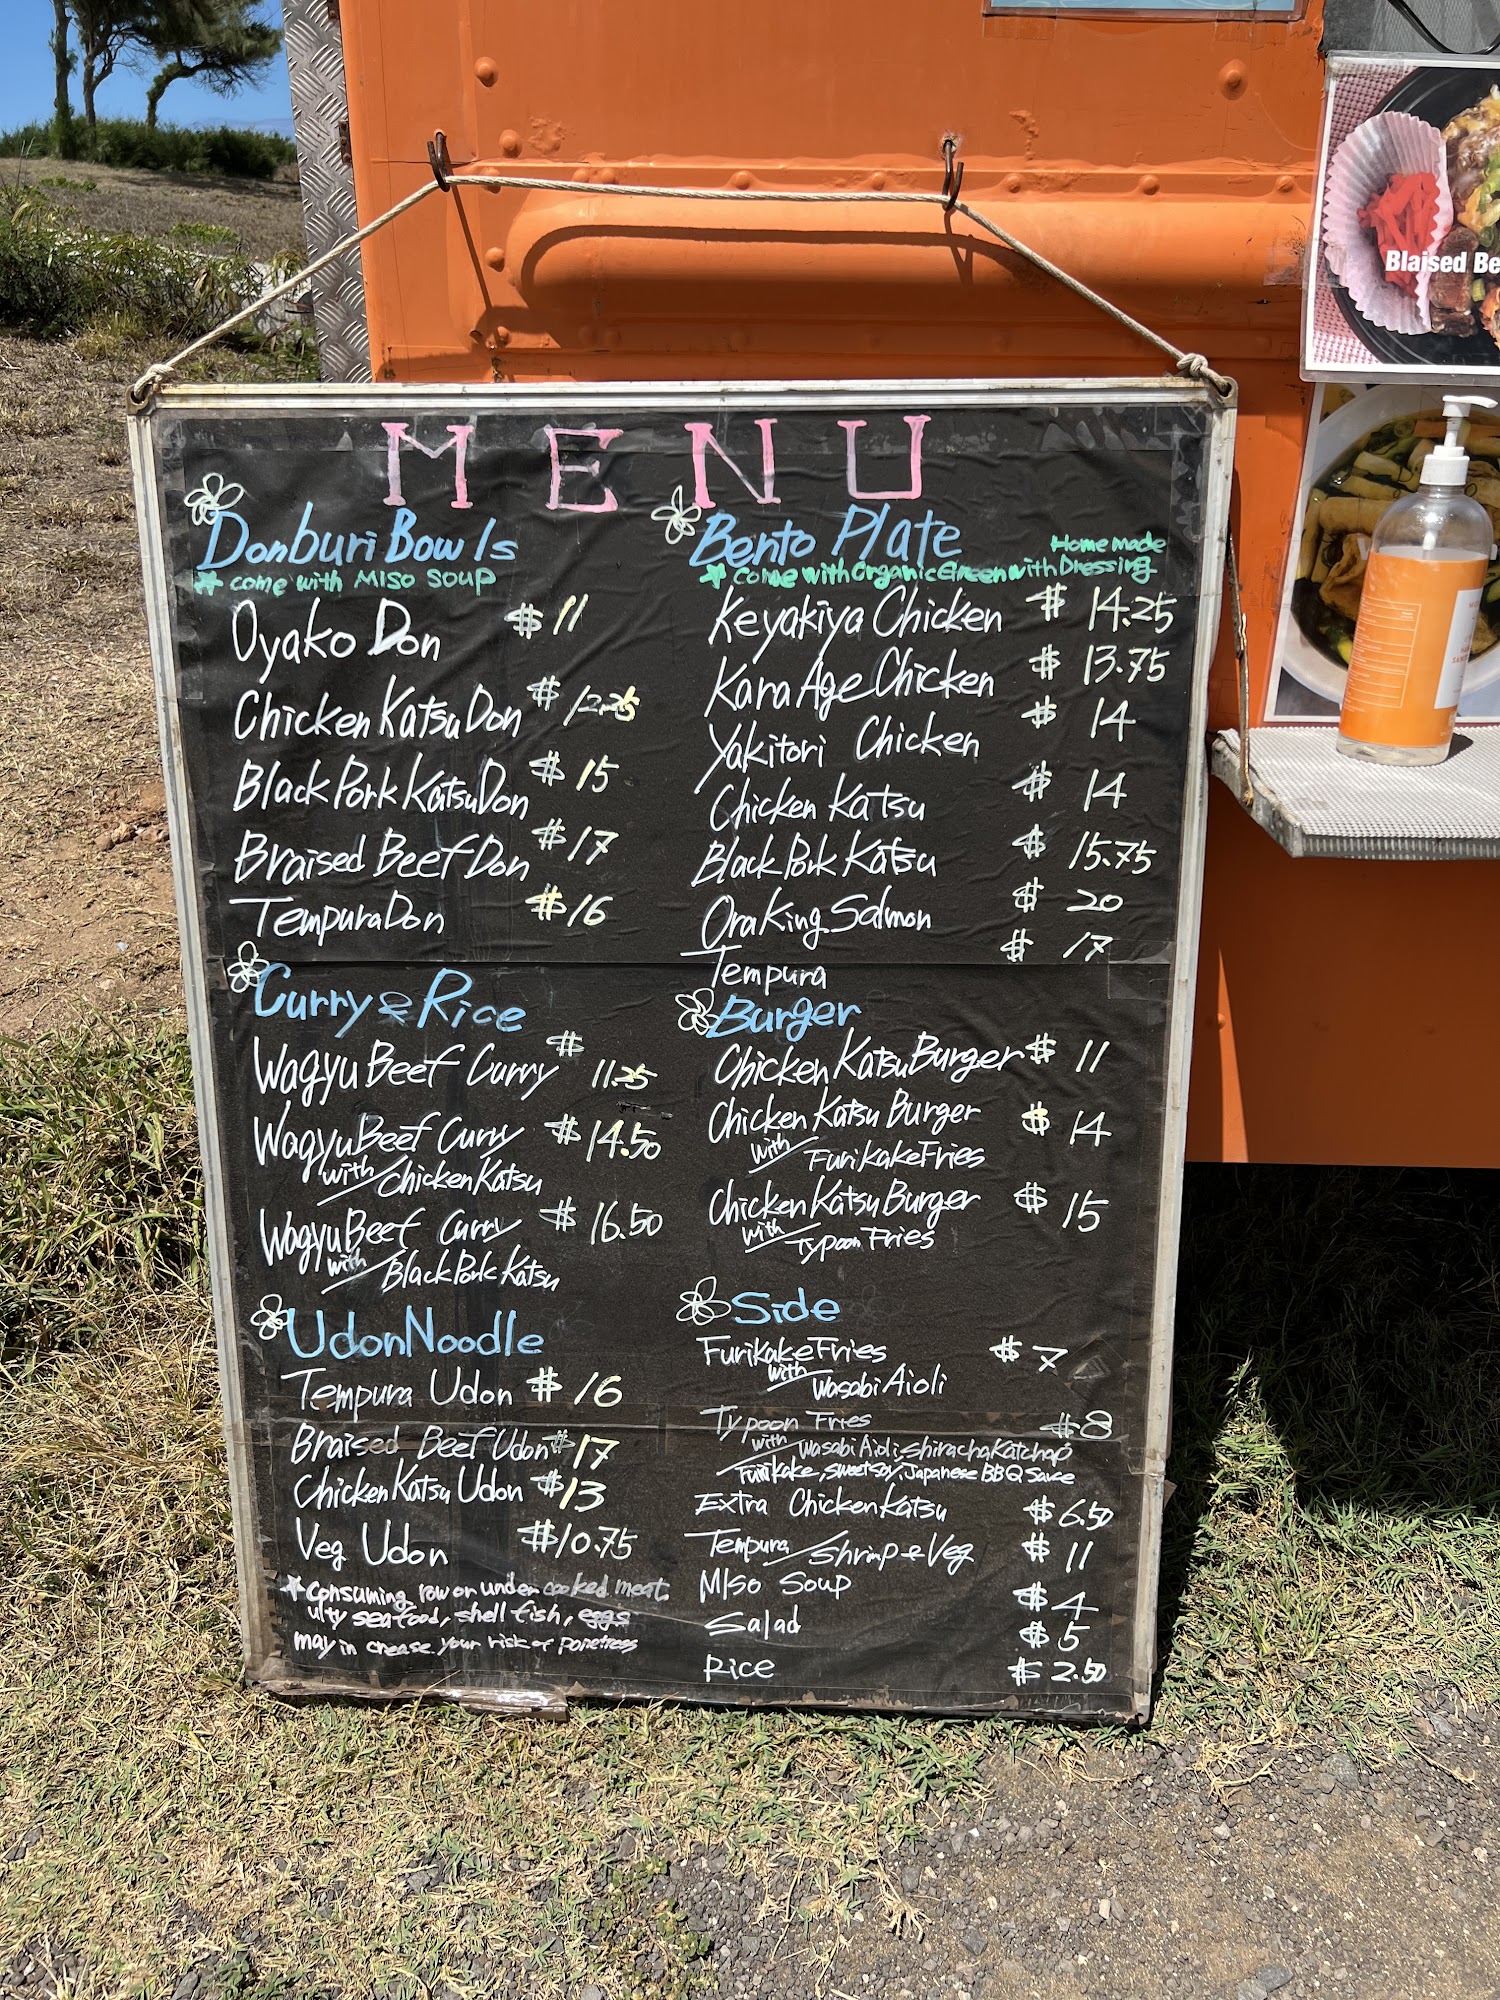 MENU
Donburi Bowls
come with MISO SOUP
Oyako Don $11
Chicken Katsu Don $12.25
Black Pork Katsu Don $15
Braised Beef Don $17
Tempura Don $16
Curry & Rice
Wagyu Beef Curry $11.25
Wagyu Beef Curry $14.50
with/Chicken Katsu
Wagyu Beef Curry $16.50
with/Black Pork Katsu
Udon Noodle
Tempura Udon $16
Braised Beef Udon $17
Chicken Katsu Udon $13
Veg Udon $10.75
Consuming row or under cooked meat.
ulty seafood, shell fish, eggs
may in crease your risk of
Bento Plate
Home made
come with Organic Green with Dressing
Keyakiya Chicken $14.25
Kara Age Chicken $13.75
Yakitori Chicken $14
Chicken Katsu $14
Black Pork Katsu $15.75
Ora King Salmon $20
Tempura $17
Burger
Chicken Katsu Burger $11
Chicken Katsu Burger $14
with/Furikake Fries
Chicken Katsu Burger $15
with/Typoon Fries
Side
Furikake Fries $7
with/Wasabi Aioli
Typoon Fries $8
with/Wasabi Aioli, Shiracha Katchap
Furikake, Sweet Soy, Japanese BBQ Sauce
Extra Chicken Katsu $6.50
Tempura/Shrimp & Veg $11
Miso Soup $4
Salad $5
Rice $2.50
Blaised Be